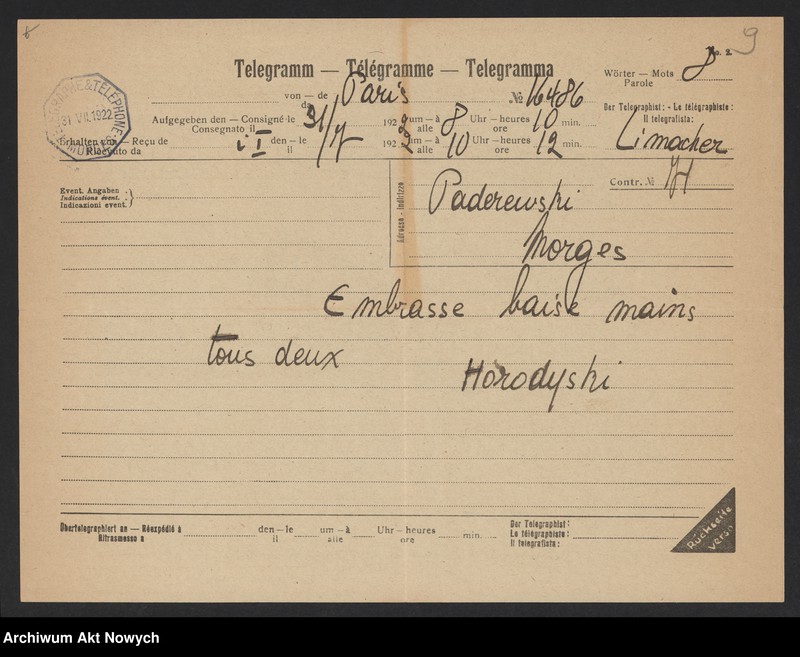 9
No. 2
Telegramm — Télégramme — Telegramma
Wörter — Mots 8
Parole
von — de Paris № 16486
da
Der Telegraphist: - Le télégraphiste:
Il telegrafista:
TELEGRAPHE & TELEPHONE
31 VII. 1922
Aufgegeben den — Consigné le 31/7 192 um — à 8 Uhr — heures 10 min.
Consegnato il alle ore
Limacher
Erhalten von — Reçu de den — le 192 um — à 10 Uhr — heures 12 min.
Ricevuto da il alle ore
Event. Angaben
Indications évent.
Indicazioni event.
Adresse - Indirizzo
Contr. №
Paderewski
Morges
Embrasse baise mains
tous deux
Horodyski
Übertelegraphiert an — Réexpédié à den — le um — à Uhr — heures min.
Ritrasmesso a il alle ore
Der Telegraphist:
Le télégraphiste:
Il telegrafista:
Rückseite
verso
Archiwum Akt Nowych